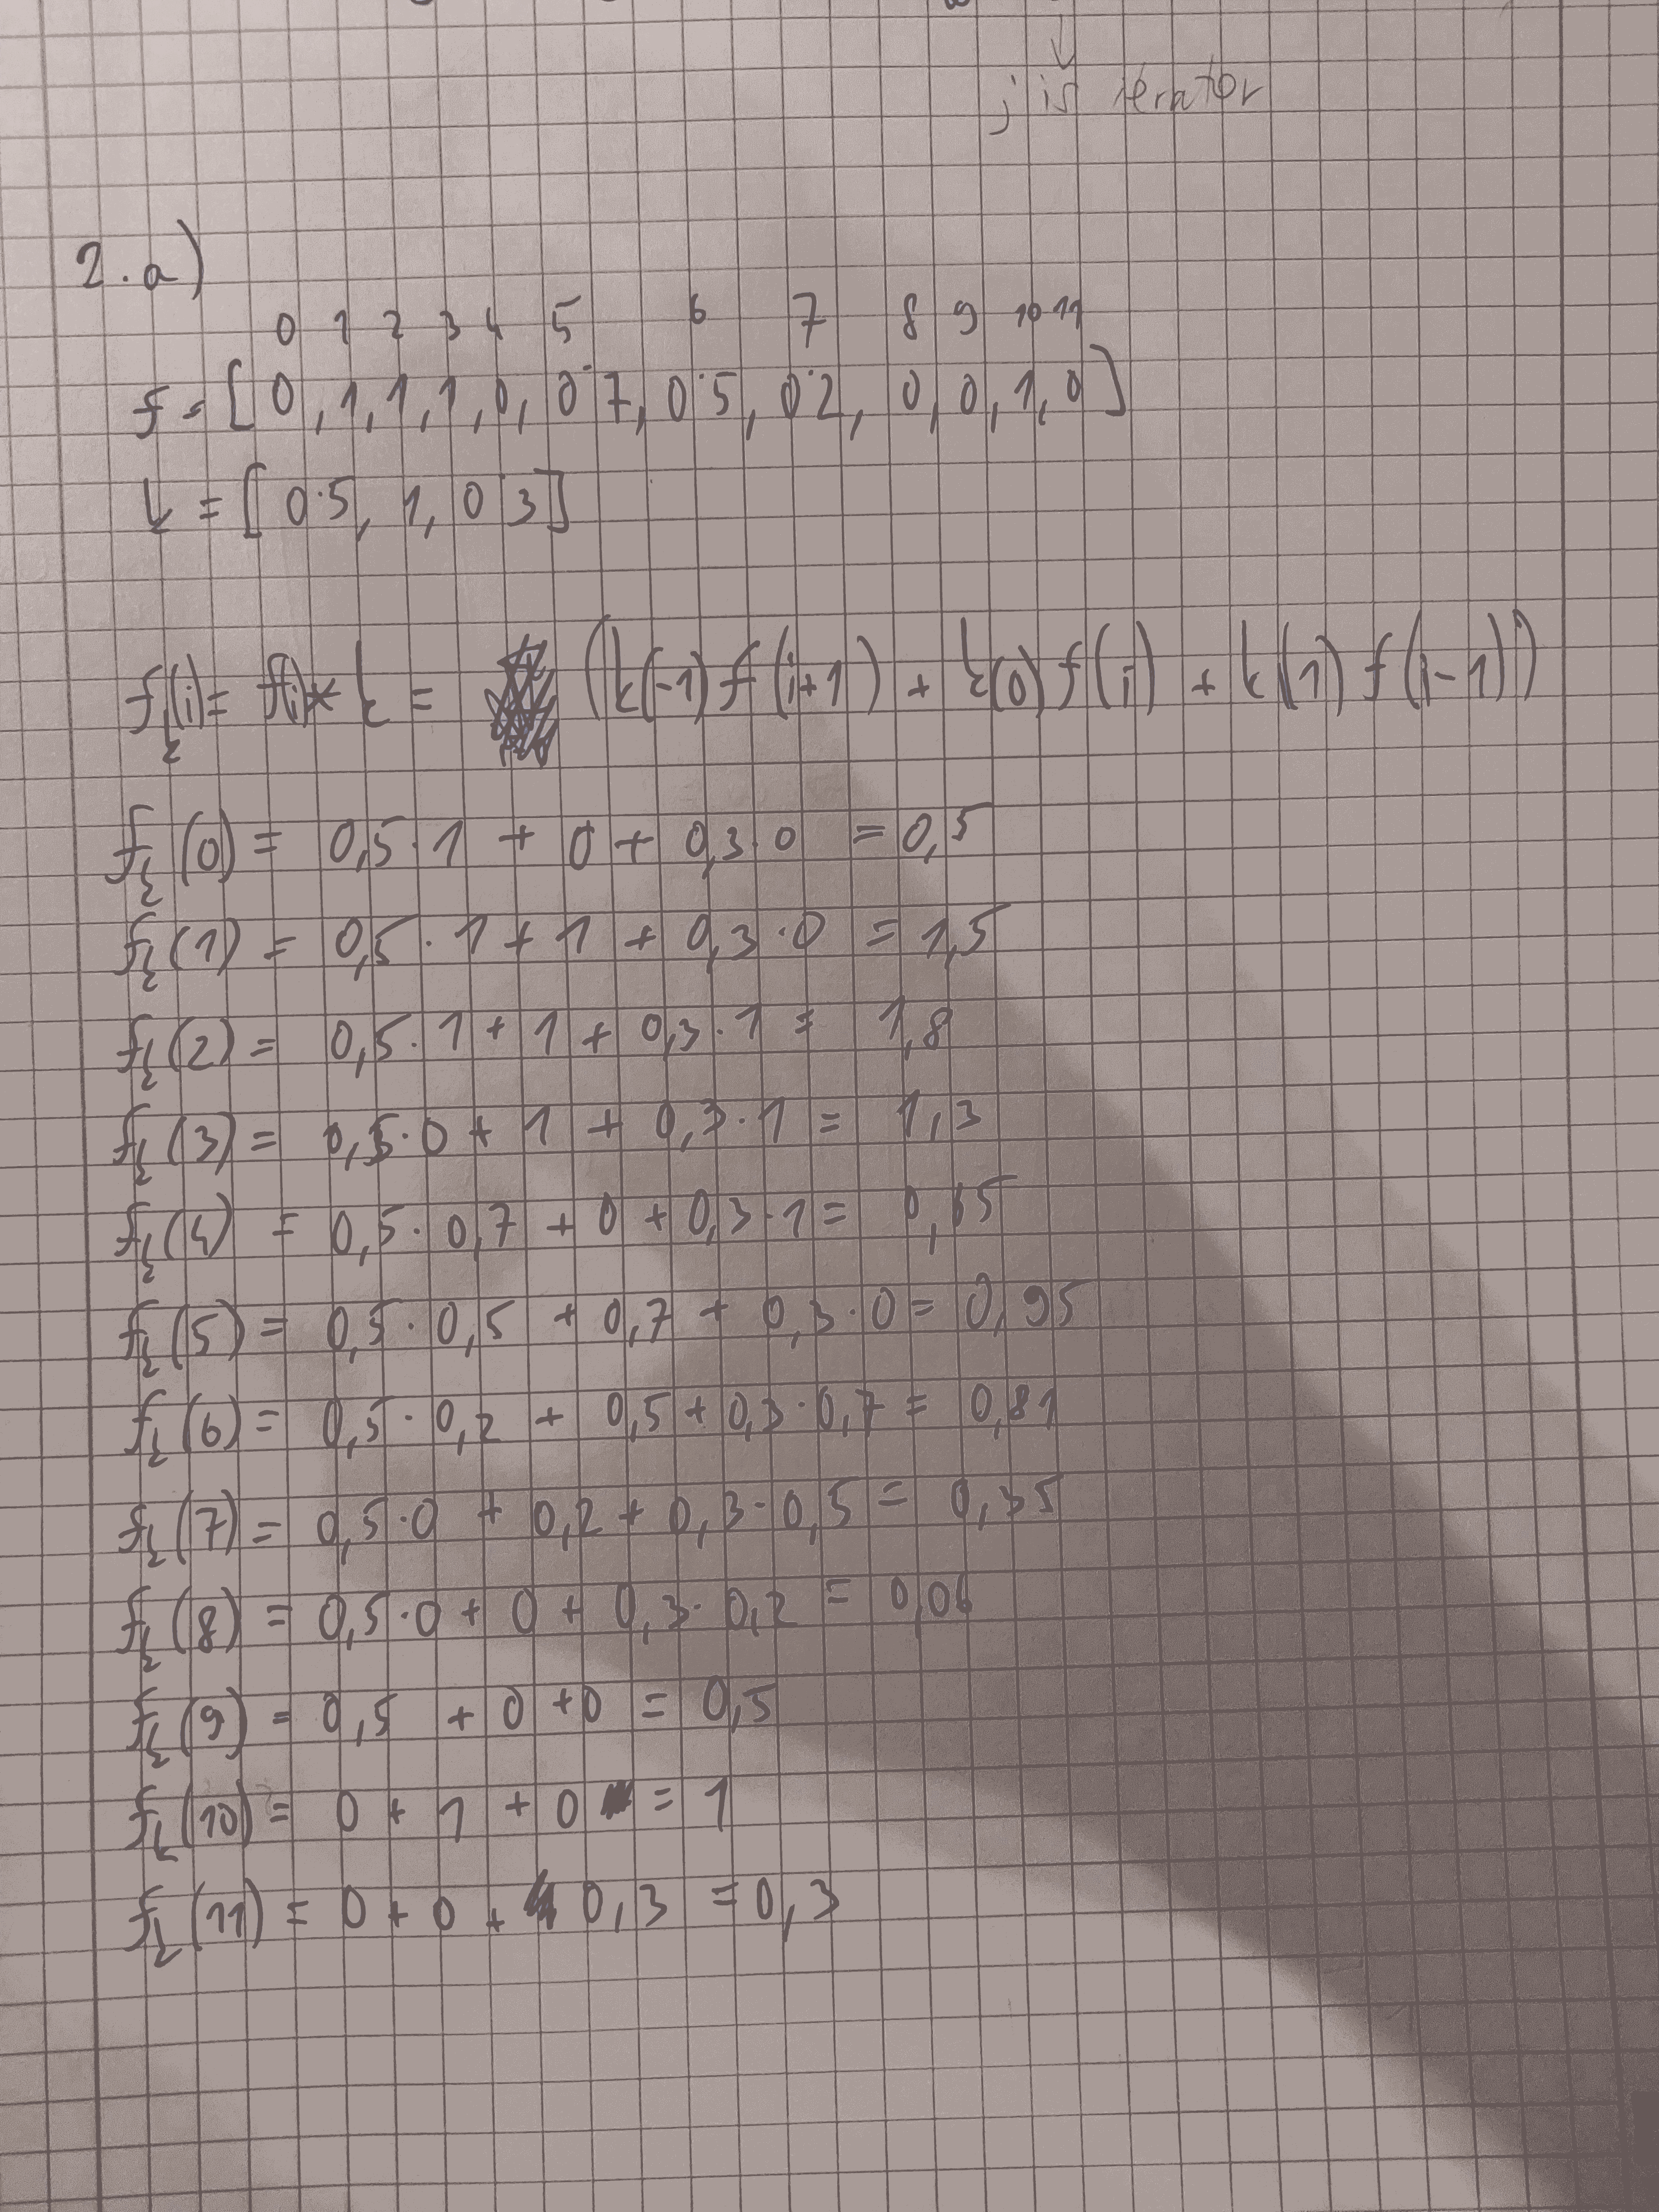 j is iterator
2.a)
0 1 2 3 4 5 6 7 8 9 10 11
f = [0, 1, 1, 1, 0, 0.7, 0.5, 0.2, 0, 0, 1, 0]
k = [0.5, 1, 0.3]
f_k(i) = f(i) * k = (k(-1) f(i+1) + k(0) f(i) + k(1) f(i-1))
f_k(0) = 0,5·1 + 0 + 0,3·0 = 0,5
f_k(1) = 0,5·1 + 1 + 0,3·0 = 1,5
f_k(2) = 0,5·1 + 1 + 0,3·1 = 1,8
f_k(3) = 0,5·0 + 1 + 0,3·1 = 1,3
f_k(4) = 0,5·0,7 + 0 + 0,3·1 = 0,65
f_k(5) = 0,5·0,5 + 0,7 + 0,3·0 = 0,95
f_k(6) = 0,5·0,2 + 0,5 + 0,3·0,7 = 0,81
f_k(7) = 0,5·0 + 0,2 + 0,3·0,5 = 0,35
f_k(8) = 0,5·0 + 0 + 0,3·0,2 = 0,06
f_k(9) = 0,5 + 0 + 0 = 0,5
f_k(10) = 0 + 1 + 0 = 1
f_k(11) = 0 + 0 + 0,3 = 0,3